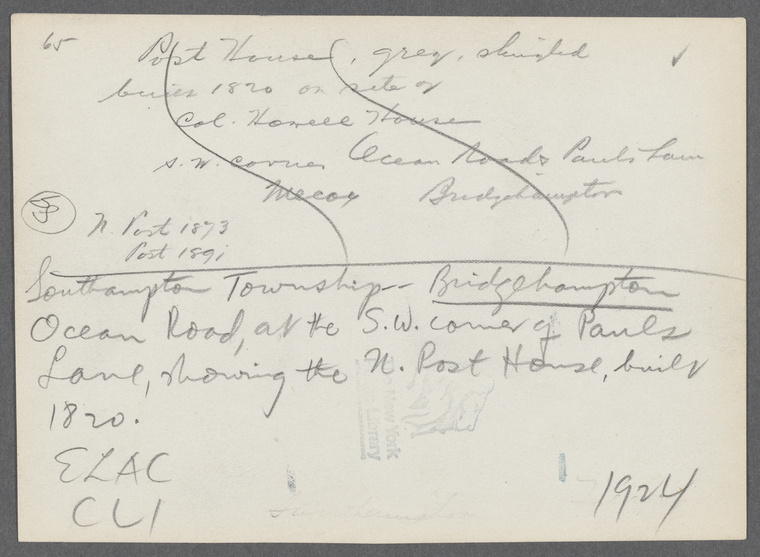 65
Post House, grey, shingled
built 1820 on site of
Col. Howell House
S.W. corner Ocean Road & Pauls Lane
Mecox Bridgehampton
N. Post 1873
Post 1891
Southampton Township - Bridgehampton
Ocean Road, at the S.W. corner of Pauls
Lane, showing the N. Post House, built
1820.
The New York
Library
ELAC
CLI
1924
Southampton